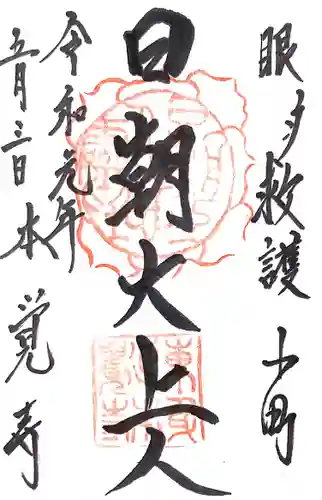 眼病救護 小町
日朝大上人
令和元年
五月三日 本覚寺